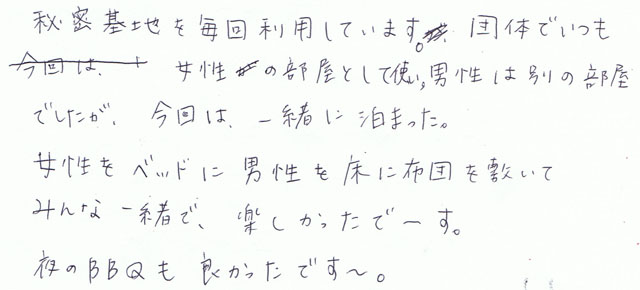 秘密基地を毎回利用しています。団体でいつも
今回は、女性の部屋として使い、男性は別の部屋
でしたが、今回は、一緒に泊まった。
女性をベッドに男性を床に布団を敷いて
みんな一緒で、楽しかったでーす。
夜のBBQも良かったです〜。